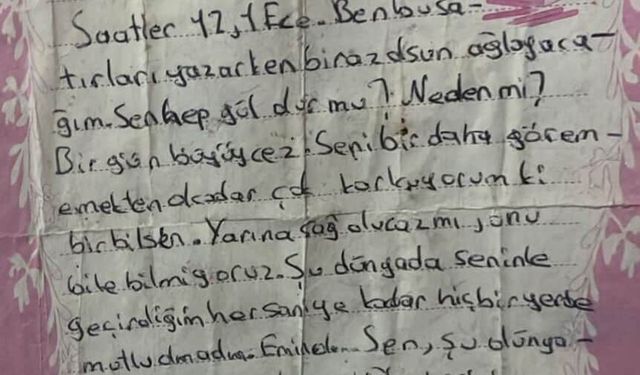 Saatler 12,1 Ece. Ben busa-
tırları yazarken biraz dsun ağlayaca-
ğım. Sen hep gül dur mu? Neden mi?
Bir gün büyüycez. Seni bir daha görem-
emekten okadar çok korkuyorum ki
bir bilsen. Yarına sağ olucazmı, şunu
bile bilmiyoruz. Şu dünyada seninle
geçirdiğim her saniye kadar hiçbir yerde
mutlu olmadım. Sen, şu dünya-